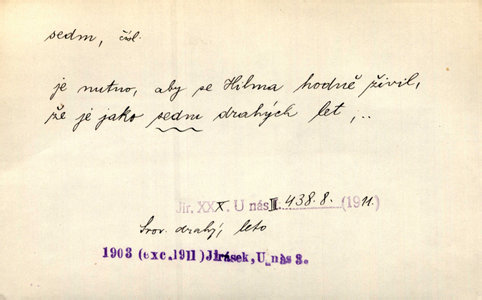 sedm, čísl.
je nutno, aby se Hilma hodně živil,
že je jako sedm drahých let, ..
Jir. XXX. U nás II. 438.8. (1911.)
Srov. drahý, leto
1903 (exc. 1911) Jirásek, U nás 3.